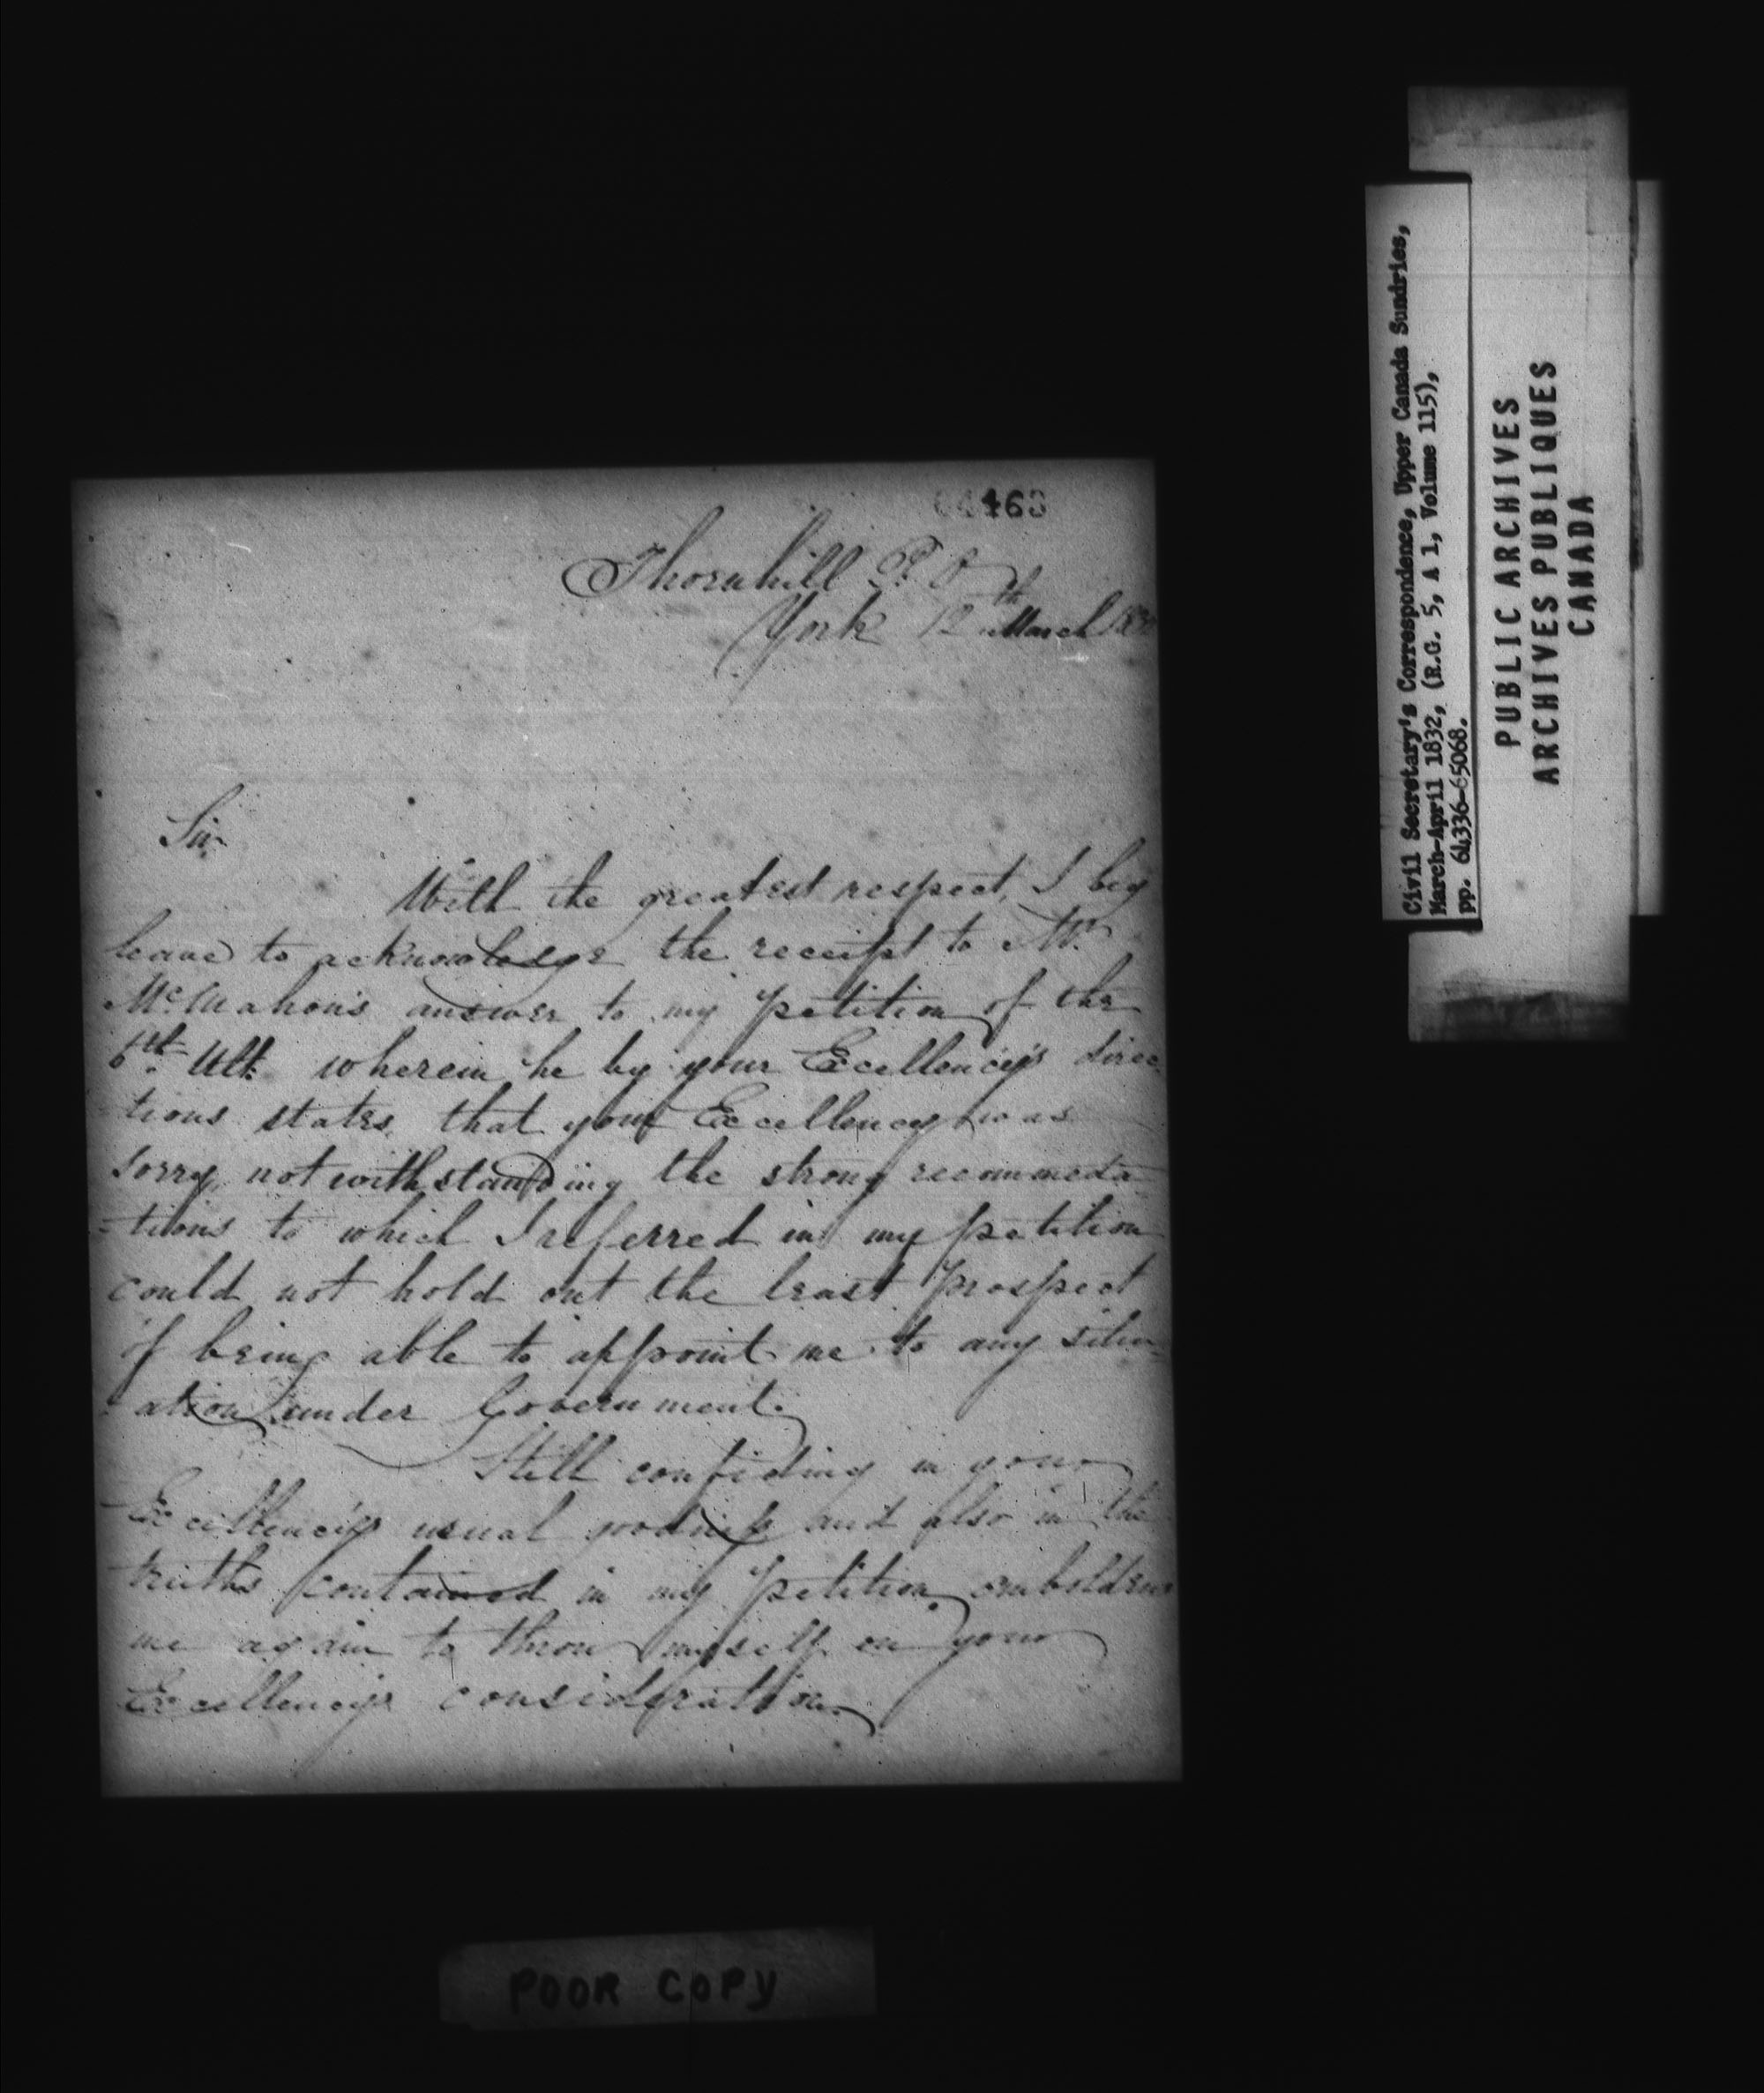 64463
Thornhill P. O.
York 12th March 183
Sir
With the greatest respect, I beg
leave to acknowledge the receipt to Mr
McMahon's answer to my petition of the
Ult. wherein he by your Excellency's direc
tions states, that your Excellency was
sorry, notwithstanding the strong recommeda
-tions to which I referred in my petition
could not hold out the least prospect
of being able to appoint me to any situ
ation under Government.
Still confiding in your
Excellency's usual goodness and also in the
truths contained in my petition, emboldens
me again to throw myself on your
Excellency's consideration.
POOR COPY
Civil Secretary's Correspondence, Upper Canada Sundries,
March-April 1832, (R.G. 5, A 1, Volume 115),
pp. 64336-65068.
PUBLIC ARCHIVES
ARCHIVES PUBLIQUES
CANADA